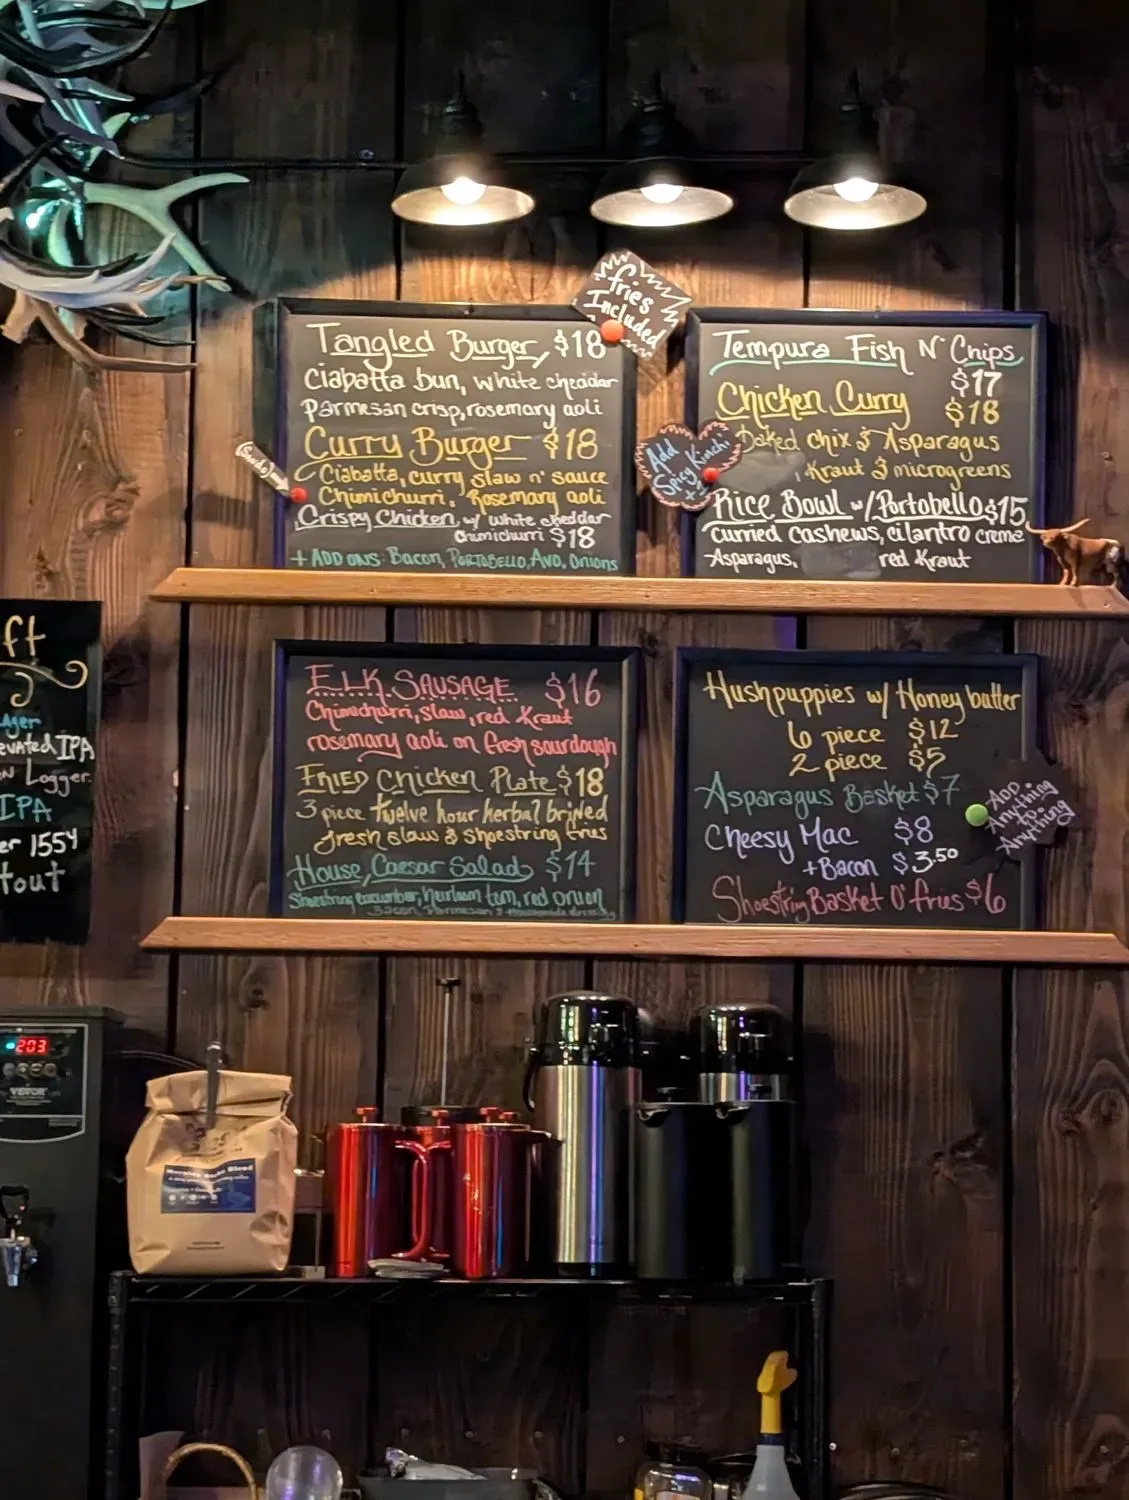 Fries
Included
Tangled Burger, $18
Ciabatta bun, white cheddar
Parmesan crisp, rosemary aoli
Curry Burger $18
Ciabatta, curry slaw n' sauce
Chimichurri, Rosemary aoli
Crispy Chicken w/ white cheddar
chimichurri $18
+ ADD ONS: Bacon, PORTOBELLO, AVO, Onions
Tempura Fish N' Chips
$17
Chicken Curry $18
Baked chix & Asparagus
Kraut & microgreens
Add
Spicy Kimchi
Rice Bowl w/ Portobello $15
curried cashews, cilantro creme
Asparagus, red Kraut
ELK SAUSAGE $16
Chimichurri, slaw, red Kraut
rosemary aoli on fresh sourdough
FRIED Chicken Plate $18
3 piece twelve hour herbal brined
fresh slaw & shoestring fries
House, Caesar Salad $14
Shoestring cucumber, heirloom tom, red onion
Bacon, Parmesan & Housemade dressing
Hushpuppies w/ Honey butter
6 piece $12
2 piece $5
Asparagus Basket $7
Cheesy Mac $8
+Bacon $3.50
Shoestring Basket O' fries $6
ADD
Anything
to
Anything
ft
ager
evated IPA
Logger
IPA
er 1554
tout
203
VEVOR
Blend